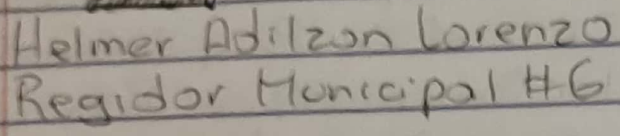 Helmer Adilzon Lorenzo
Regidor Municipal #6